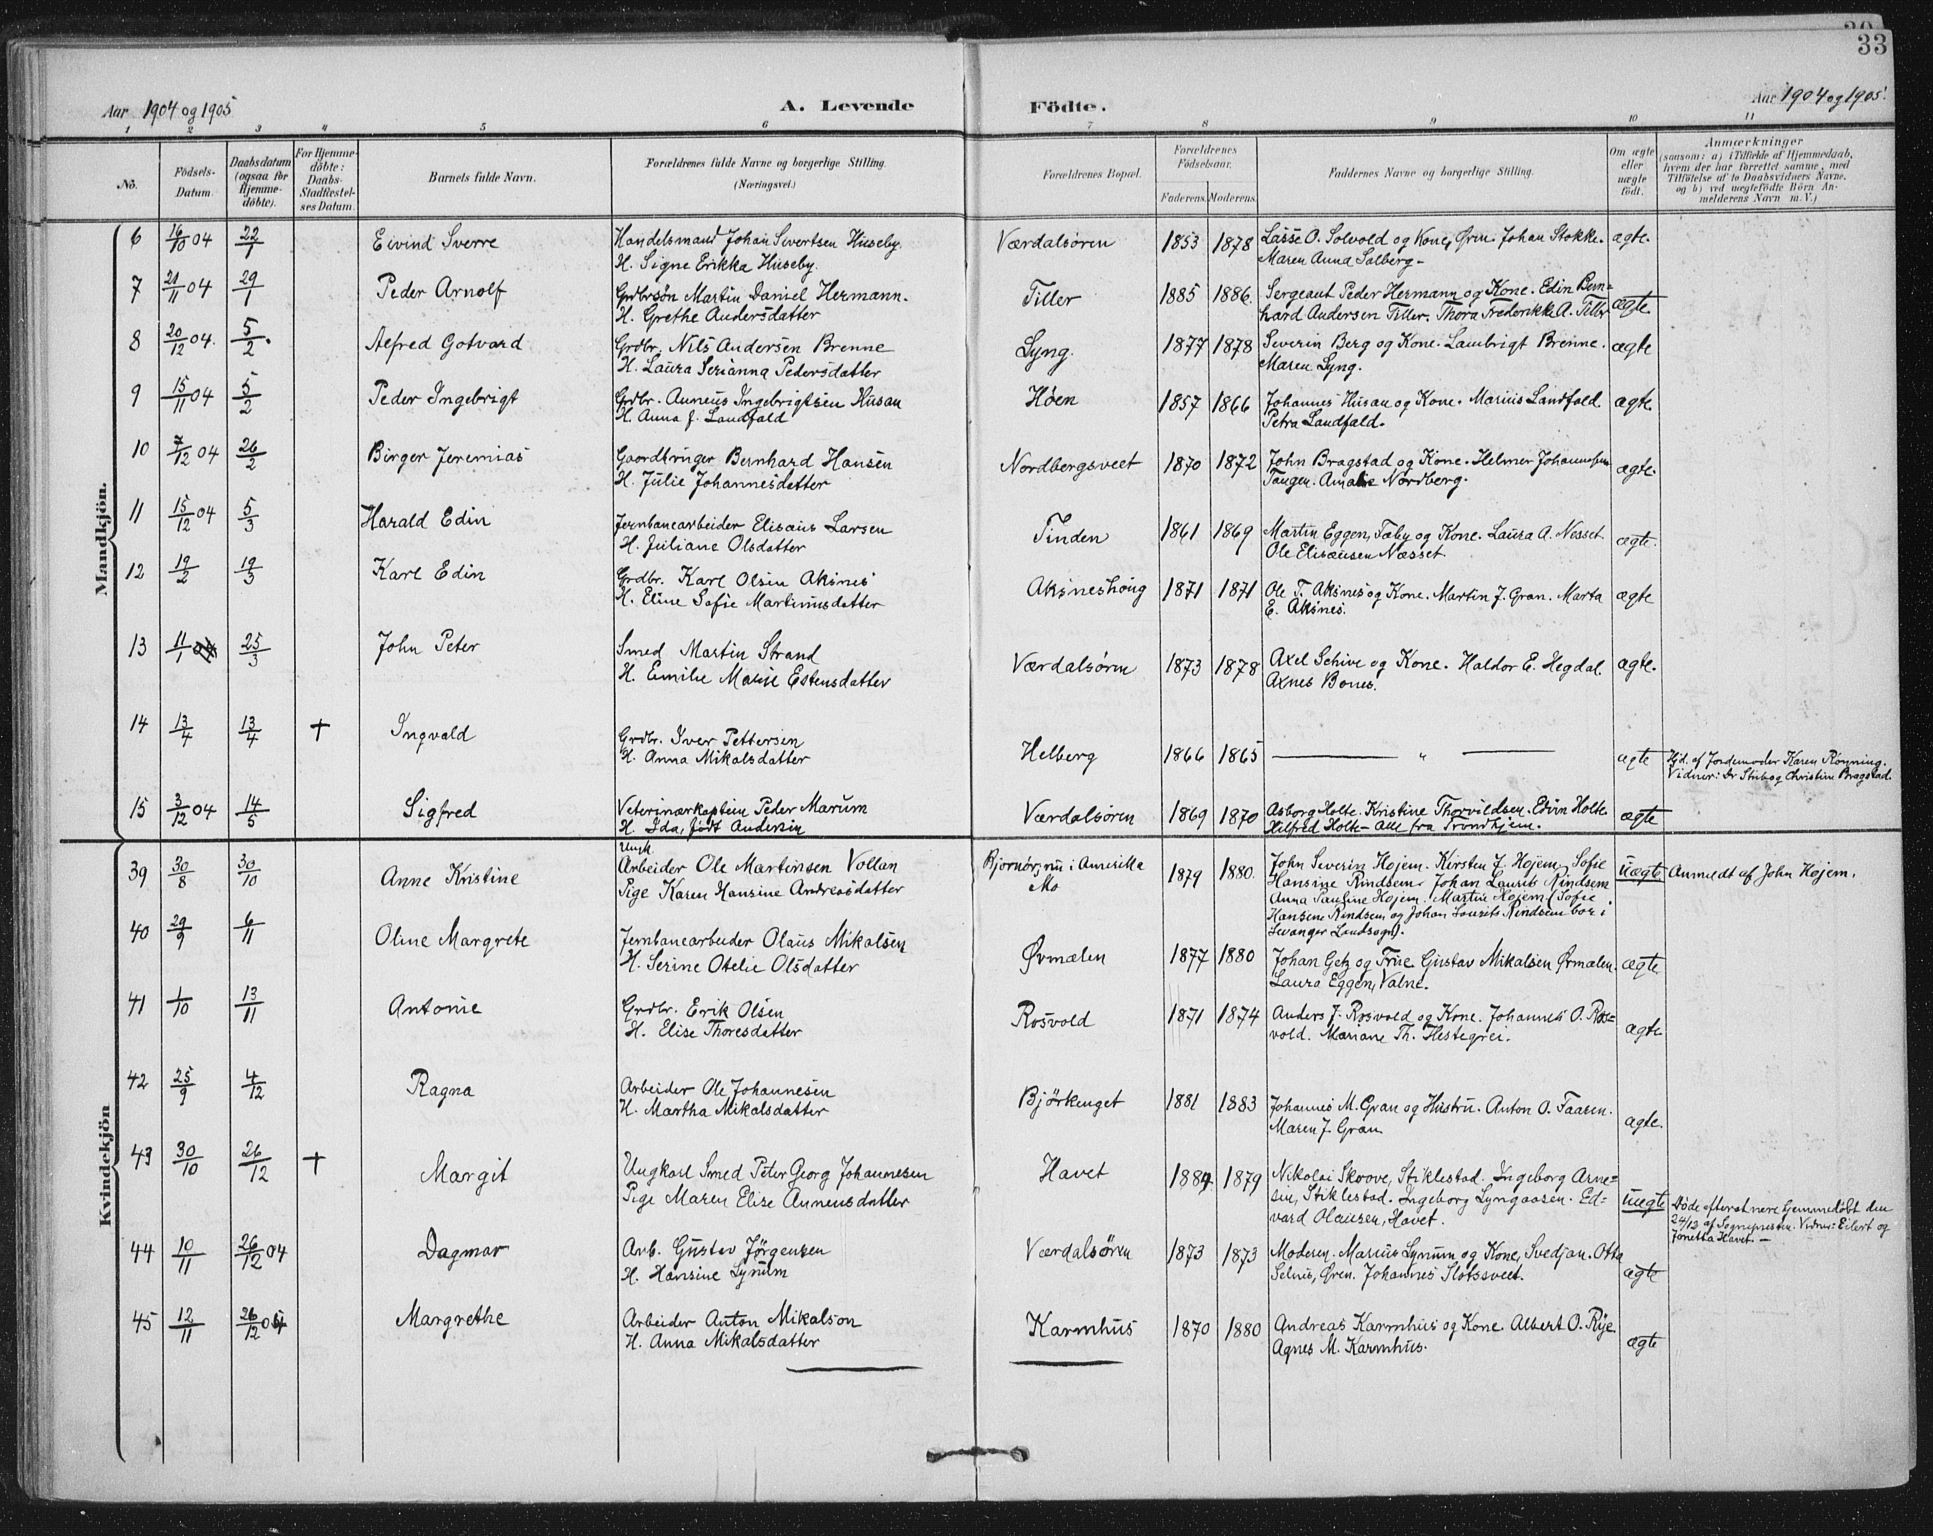 33
Aar 1904 og 1905
A. Levende
Födte.
Aar 1904 og 1905.
1 2 3 4 5 6 7 8 9 10 11
No.
Födsels-
Datum.
Daabsdatum
(ogsaa for
Hjemme-
döbte).
For Hjemme-
döbte:
Daabs-
Stadfæstel-
ses Datum.
Barnets fulde Navn.
Forældrenes fulde Navne og borgerlige Stilling.
(Næringsvei.)
Forældrenes Bopæl.
Forældrenes
Födselsaar.
Faderens. Moderens.
Faddernes Navne og borgerlige Stilling.
Om ægte
eller
uægte
födt.
Anmærkninger
(saasom: a) i Tilfælde af Hjemmedaab,
hvem der har forrettet samme, med
Tilföielse af to Daabsvidners Navne,
og b) ved uægtefödte Börn An-
melderens Navn m. V.)
Mandkjön.
6 16/10 04 22/1 Eivind Sverre Handelsmand Johan Sivertsen Huseby. Værdalsören 1853 1878 Lasse O. Solvold og Kone, Ørin. Johan Stokke. ægte.
H. Signe Erikka Huseby. Maren Anna Salberg-
7 21/11 04 29/1 Peder Arnolf Grdbrsøn Martin Daniel Hermann. Tiller 1885 1886. Sergeant Peder Hermann og Kone. Edin Bern= ægte
H. Grethe Andersdatter hard Andersen Tiller. Thora Frederikke A. Tiller
8 20/12 04. 5/2. Alfred Gotvard Grdbr. Nils Andersen Brenne Lyng. 1877 1878 Severin Berg og Kone. Lambrigt Brenne. ægte
H. Laura Serianna Pedersdatter Maren Lyng.
9 15/11 04 5/2 Peder Ingebrigt Grdbr. Anneus Ingebrigtsen Husan Høen 1857 1866 Johannes Husan og Kone. Marius Landfald. ægte.
H. Anna J. Landfald Petra Landfald.
10 7/12 04 26/2 Birger Jeremias Gaardbruger Bernhard Hansen Nordbergsveet 1870 1872 John Bragstad og Kone. Helmer Johannesen ægte.
H. Julie Johannesdatter Tangen. Amalie Nordberg.
11 15/12 04 5/3 Harald Edin Jernbanearbeider Elisæus Larsen Tinden 1861 1869 Martin Eggen, Fæby og Kone. Laura A. Nesset ægte.
H. Juliane Olsdatter Ole Elisæusen Næsset.
12 19/2 19/3 Karl Edin Grdbr. Karl Olsen Aksnes Aksneshoug 1871 1871 Ole T. Aksnes og Kone. Martin J. Gran. Marta ægte
H. Eline Sofie Martinusdatter E. Aksnes.
13 11/1 25/3 John Peter Smed Martin Strand Værdalsören 1873 1878 Axel Schive og Kone. Haldor E. Hegdal. ægte.
H. Emilie Marie Estensdatter Axnes Bones.
14 13/4 13/4 + Ingvald Grdbr. Iver Pettersen Helberg 1866 1865 — " — ægte Hjd. af Jordemoder Karen Rönning.
H. Anna Mikalsdatter Vidner: Dr Strib og Christine Bragstad
15 3/12 04 14/5 Sigfred Veterinærkaptein Peder Marum Værdalsören 1869 1870 Asborg Holte. Kristine Thorvildsen. Edvin Holte ægte
H. Ida, født Andersen Hilfred Holte - alle fra Trondhjem.
Kvindekjön
39 30/8 30/10 Anne Kristine Ungk. Arbeider Ole Martinsen Vollan Bjornör, nu i Amerikka 1879 1880. John Severin Hojem. Kirsten J. Hojem. Sofie uægte Anmeldt af John Hojem.
Pige Karen Hansine Andreasdatter Mo Hansine Rindsem. Johan Laurits Rindsem
Anna Pauline Hojem. Martin Hojem (Sofie
Hansine Rindsem og Johan Laurits Rindsem bor i
Levanger Landsogn).
40 29/9 6/11 Oline Margrete Jernbanearbeider Olaus Mikalsen Øvmælen 1877 1880 Johan Getz og Frue. Gustav Mikalsen Ørmælen. ægte
H. Serine Otelie Olsdatter Laura Eggen, Valne.
41 1/10 13/11 Antonie Grdbr. Erik Olsen Rosvold 1871 1874 Anders J. Rosvold og Kone. Johannes O. Ros= ægte
H. Elise Thoresdatter vold. Mariane Th. Hestegrei.
42 25/9 4/12 Ragna Arbeider Ole Johannesen Bjørkenget 1881 1883 Johannes M. Gran og Hustru. Anton O. Faaren. ægte.
H. Martha Mikalsdatter Maren J. Gran
43 30/10 26/12 + Margit Ungkarl Smed Peter Georg Johannesen Havet 1884. 1879 Nikolai Skrove, Stiklestad. Ingeborg Arne= uægte Døde efter at være hjemmedøbt den
Pige Maren Elise Anneusdatter sen, Stiklestad. Ingeborg Lyngaasen. Ed= 24/12 af Sognepresten. Vidner: Eilert og
vard Olausen, Havet. Jonetta Havet. -
44 10/11 26/12 04 Dagmar Arb. Gustav Jørgensen Værdalsören 1873 1873 Moderen. Marius Lynum og Kone, Svedjan. Otto ægte
H. Hansine Lynum Selnes, Øren. Johannes Slotssveet.
45 12/11 26/12 04 Margrethe Arbeider Anton Mikalson Karmhus 1870 1880 Andreas Karmhus og Kone. Albert O. Rye. ægte
H. Anna Mikalsdatter Agnes M. Karmhus.